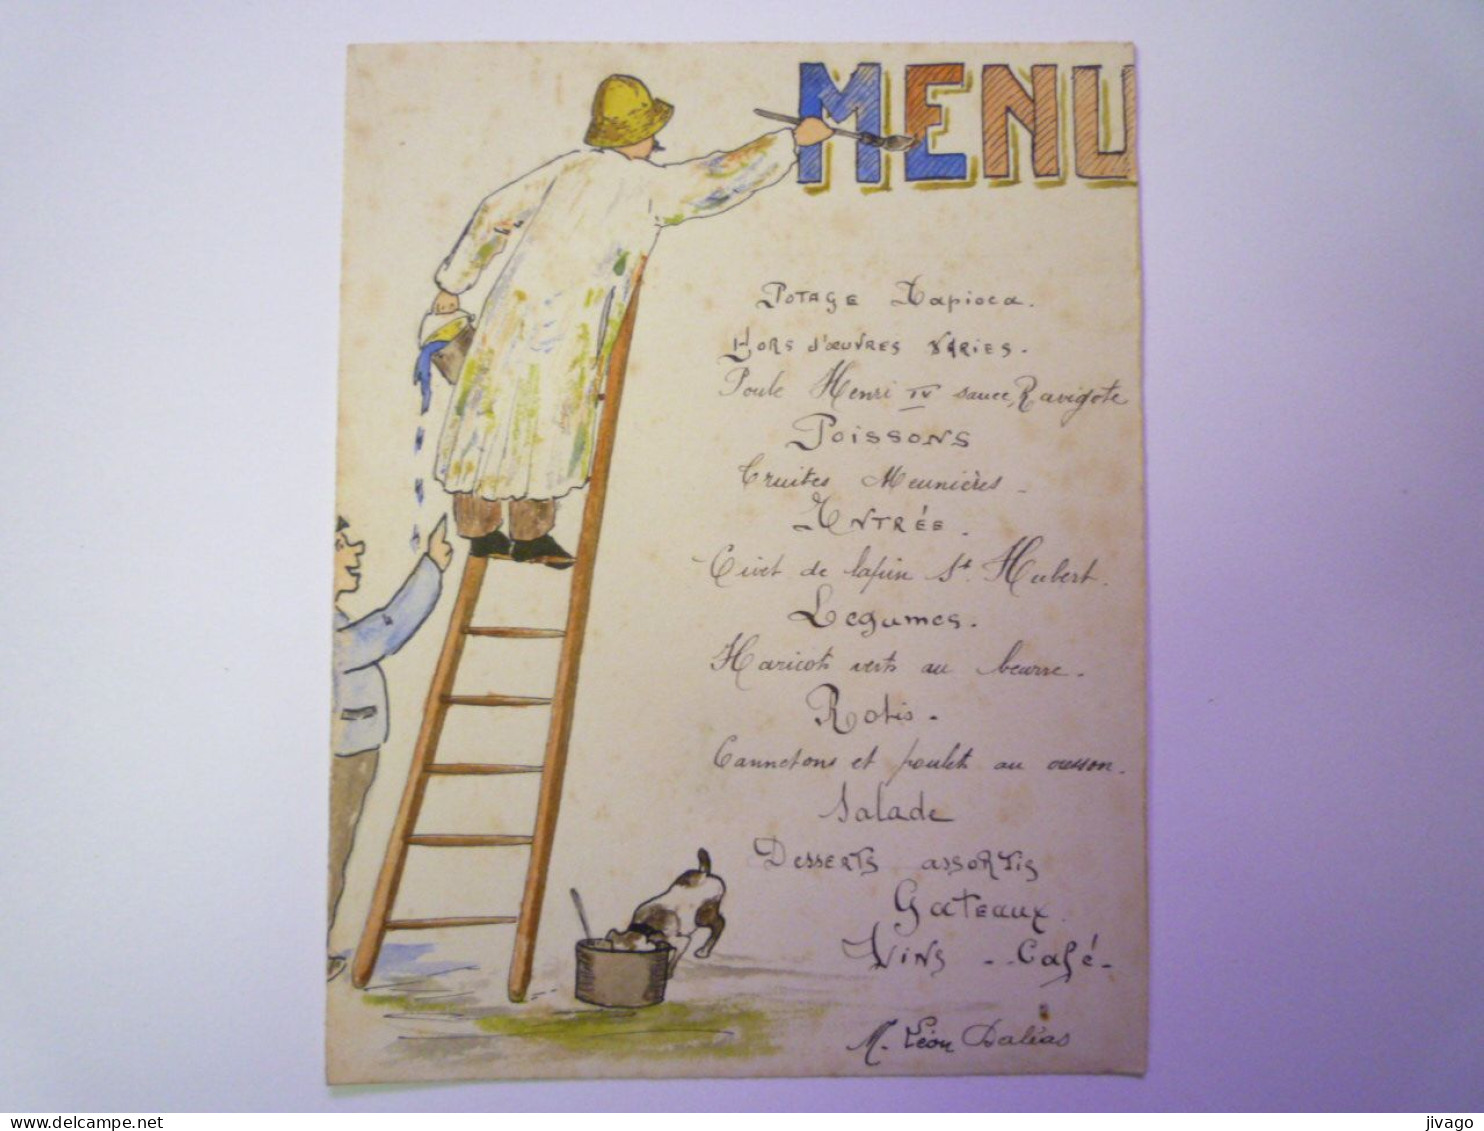 MENU
Potage Tapioca.
Hors d'œuvres variés.
Poule Henri IV sauce Ravigote
Poissons
Truites Meunières
Entrée.
Civet de lapin St. Hubert.
Légumes.
Haricots verts au beurre.
Rotis.
Cannetons et poulets au cresson.
Salade
Desserts assortis
Gateaux
Vins - Café
M. Léon Dalias
jivago